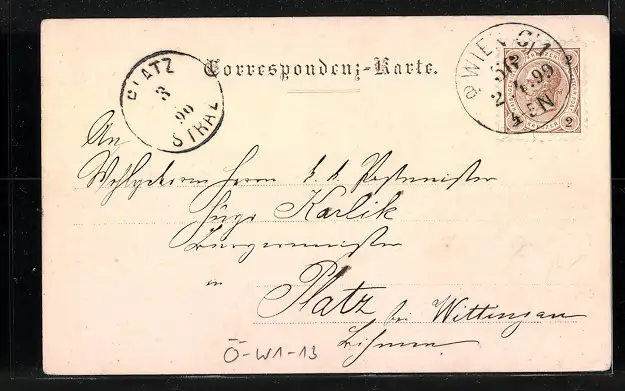 Correspondenz-Karte.
WIEN
2 2
99
PLATZ
3
STRAŽ
KREUZER
2 2
An
Wohlgeboren Herrn k. k. Postmeister
Hugo Karlik
Bürgermeister
in
Platz bei Wittingau
Böhmen
Ö-W1-13